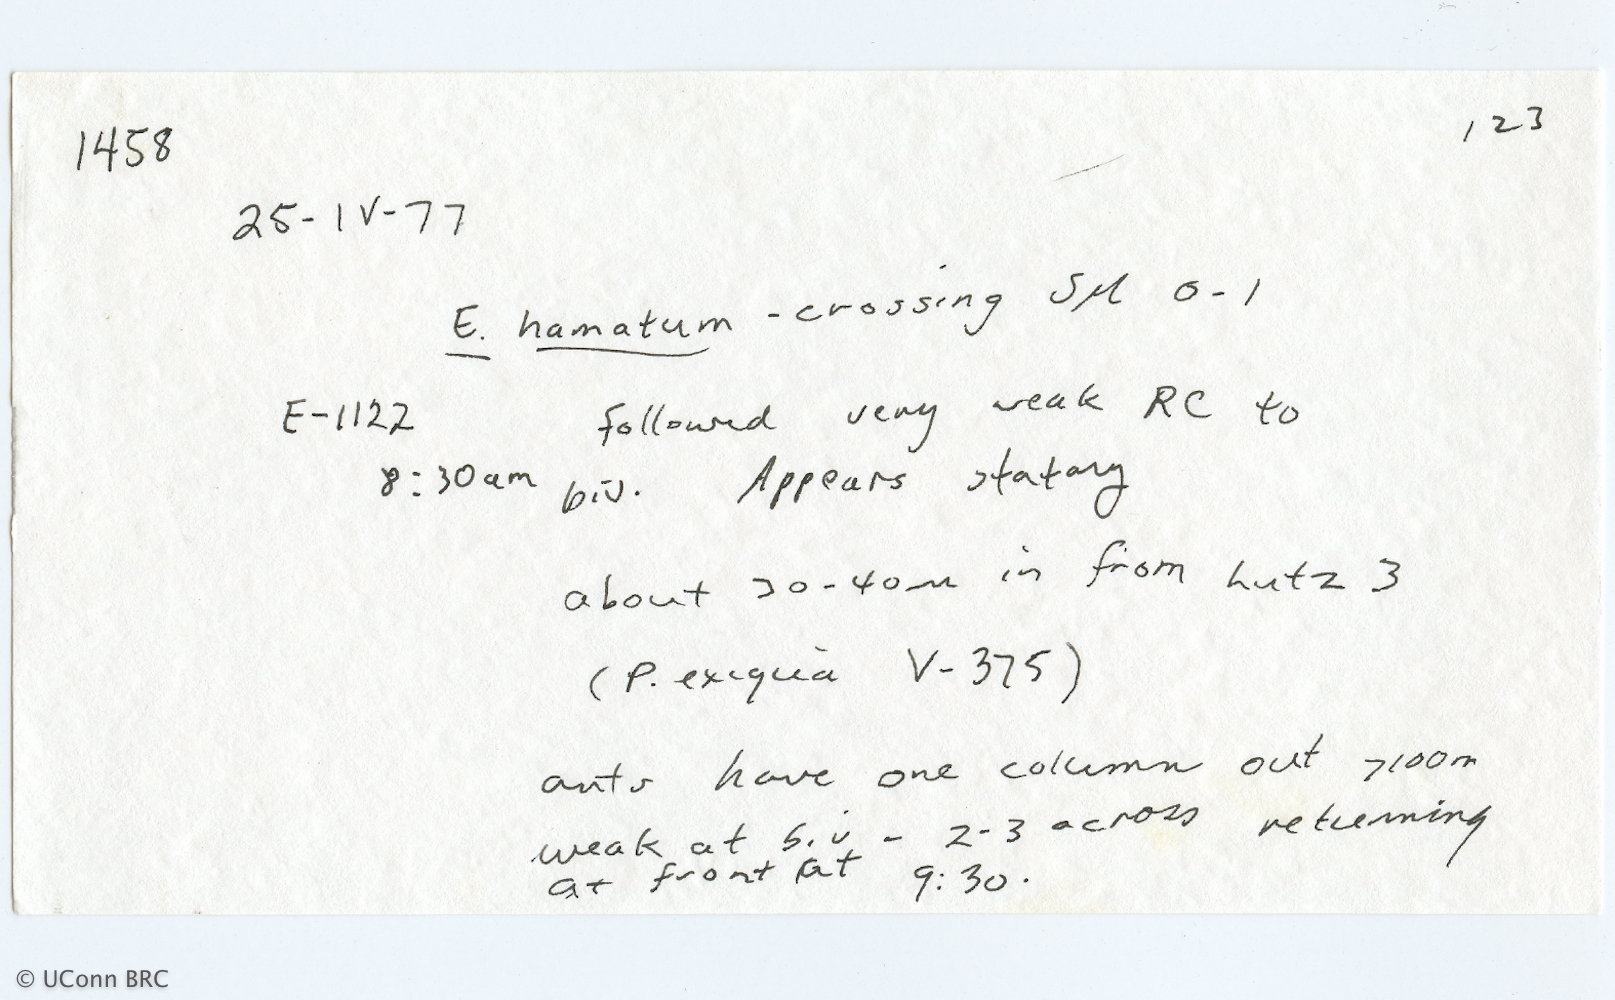 1458
123
25-IV-77
E. hamatum - crossing SM 0-1
E-1122 followed very weak RC to
8:30am biv. Appears statary
about 30-40m in from Lutz 3
(P. exigua V-375)
ants have one column out >100m
weak at biv - 2-3 across returning
at front at 9:30.
© UConn BRC